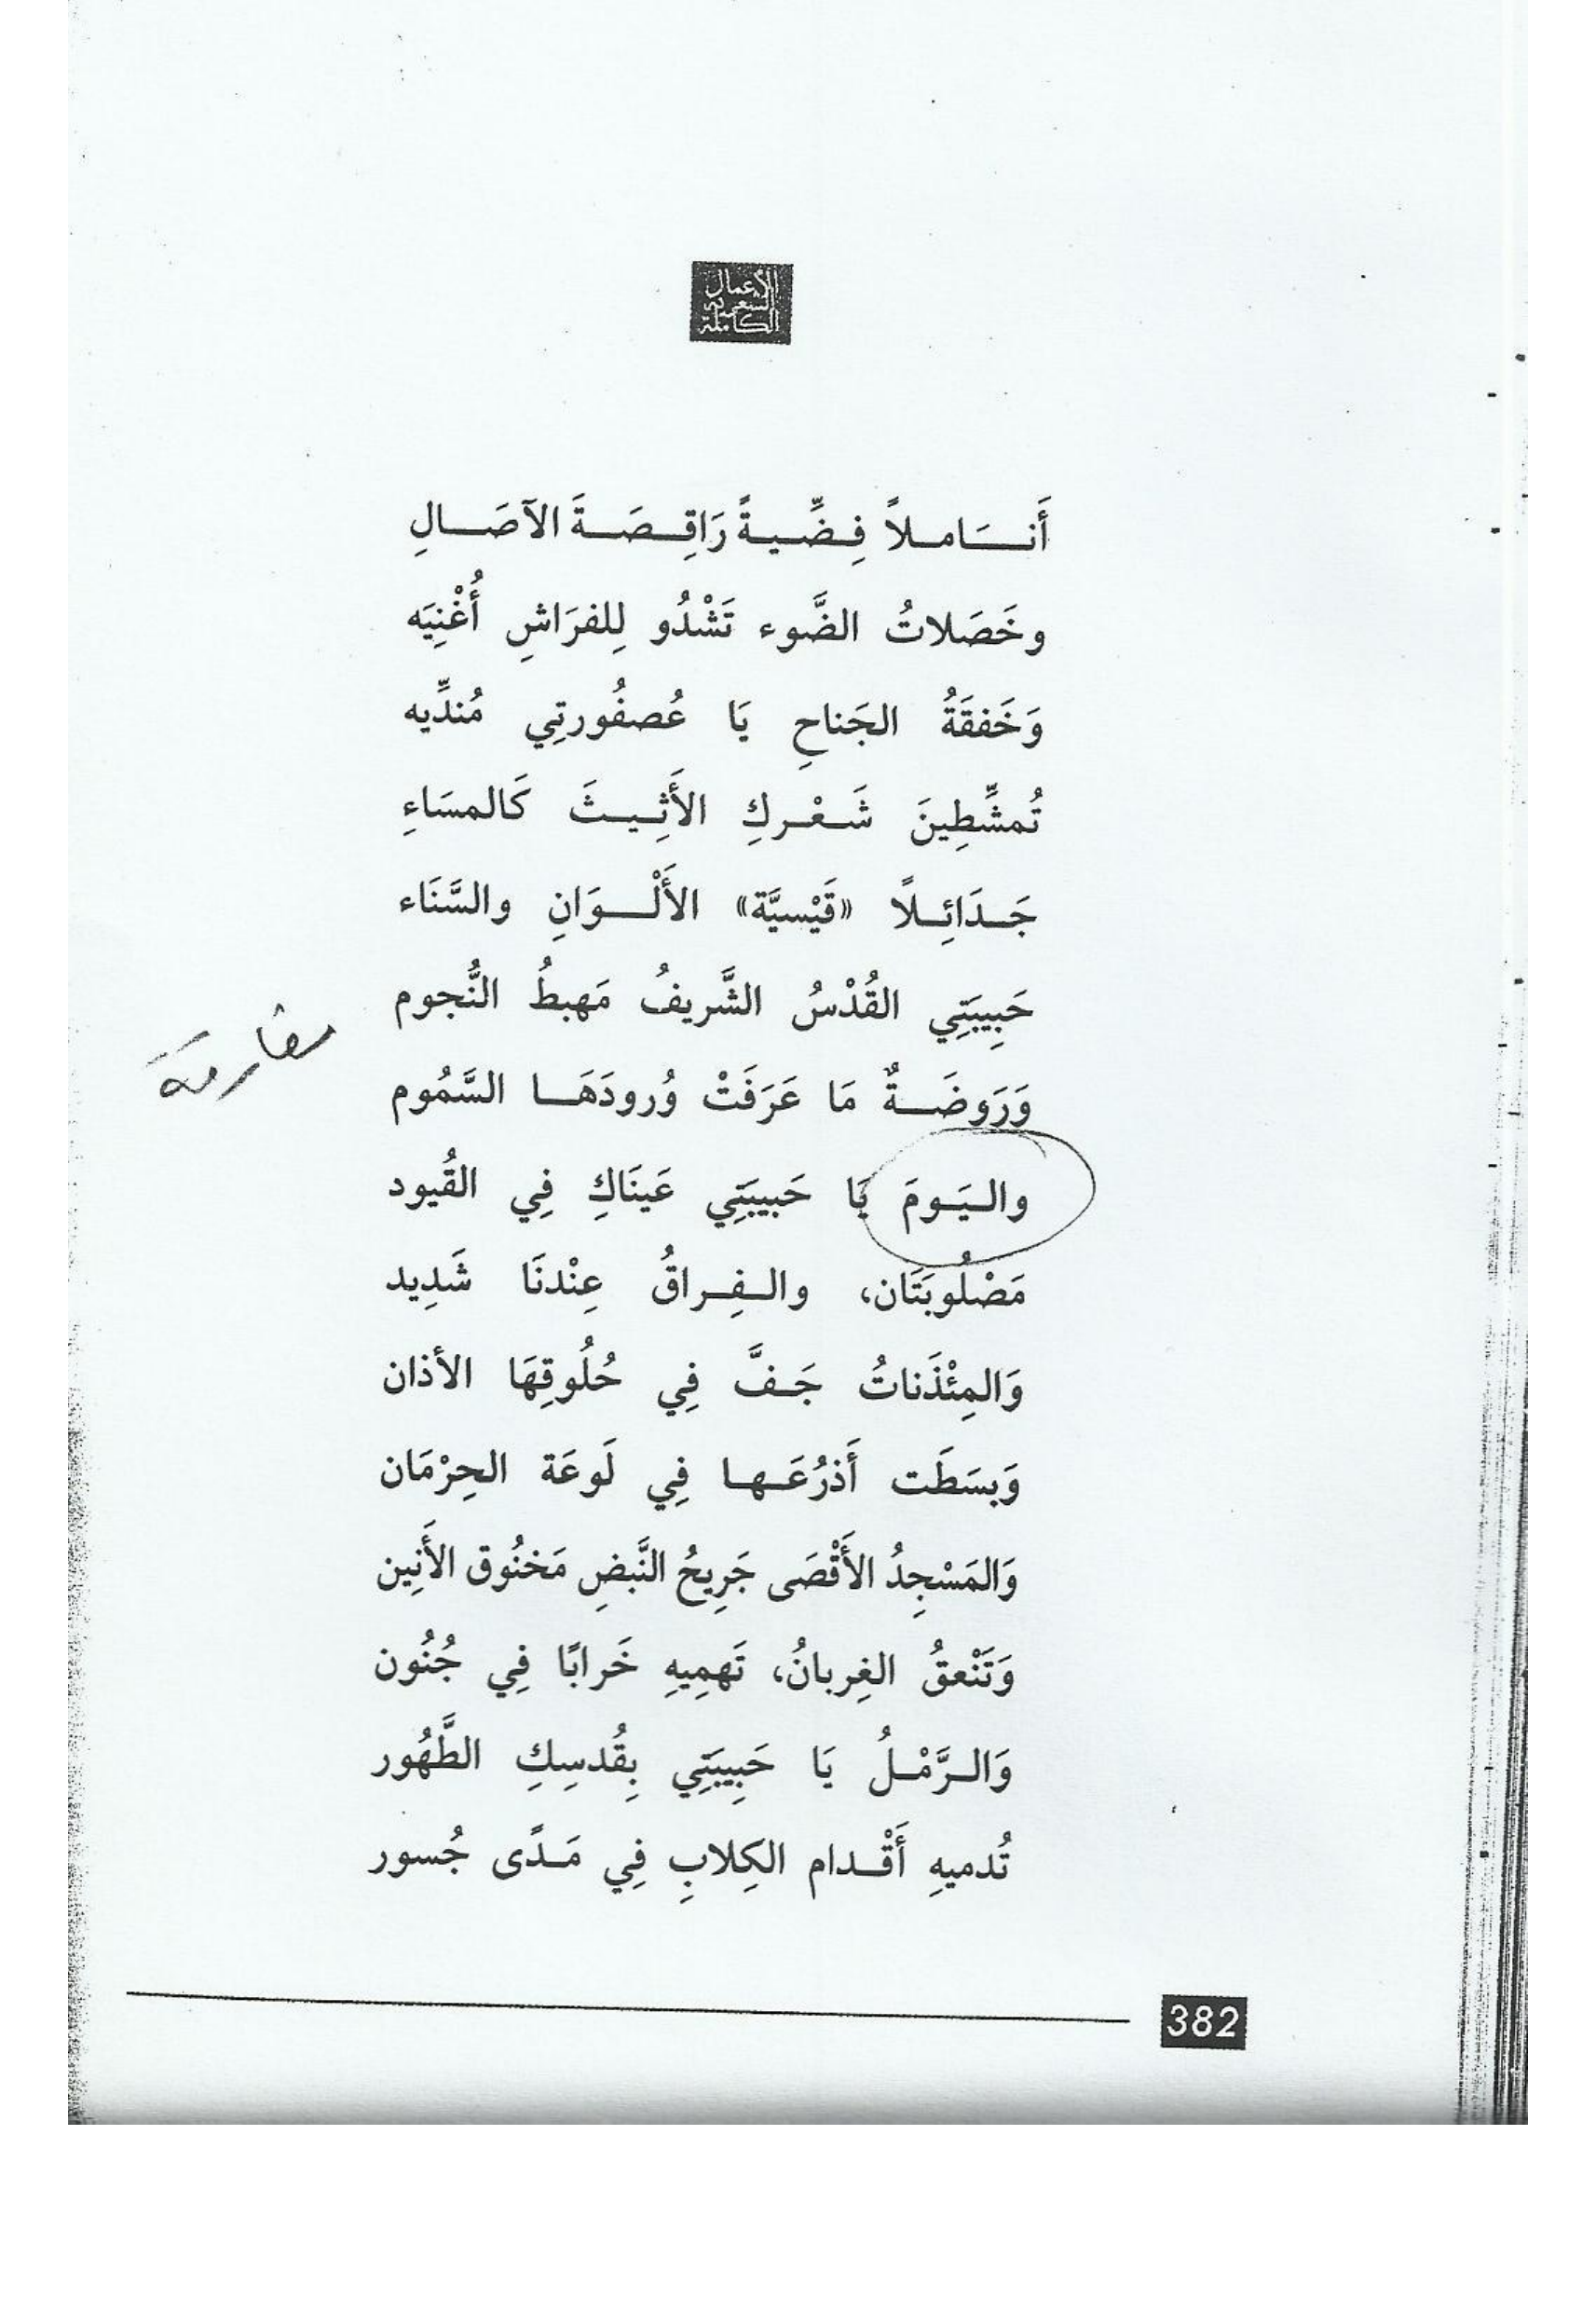 الأعمال
الشعرية
الكاملة
أَنــسَـامـلاً فِـضِّـيـةً رَاقِـصَـةَ الآصَـالِ
وخَصَلاتُ الضَّوء تَشْدُو لِلفرَاشِ أُغْنِيَه
وَخَفقَةُ الجَناحِ يَا عُصفُورتِي مُندِّيه
تُمشِّطِينَ شَـعْـركِ الأَثِـيـثَ كَالمسَاءِ
جَـدَائِـلاً «قَيْسيَّة» الأَلْـوَانِ والسَّنَاء
حَبِيبَتِي القُدْسُ الشَّريفُ مَهبطُ النُّجوم
وَرَوضَـةٌ مَا عَرَفَتْ وُرودَهَـا السَّمُوم
والـيَـومَ يَا حَبيبَتِي عَينَاكِ فِي القُيود
مَصْلُوبَتَان، والـفِـراقُ عِنْدنَا شَدِيد
وَالمِئْذَناتُ جَـفَّ فِي حُلُوقِهَا الأذان
وَبسَطَت أَذرُعَـهـا فِي لَوعَة الحِرْمَان
وَالمَسْجِدُ الأَقْصَى جَرِيحُ النَّبضِ مَخنُوق الأَنِين
وَتَنْعقُ الغِربانُ، تَهمِيهِ خَرابًا فِي جُنُون
وَالـرَّمْـلُ يَا حَبِيبَتِي بِقُدسِكِ الطَّهُور
تُدميهِ أَقْـدام الكِلابِ فِي مَـدًى جُسور
382